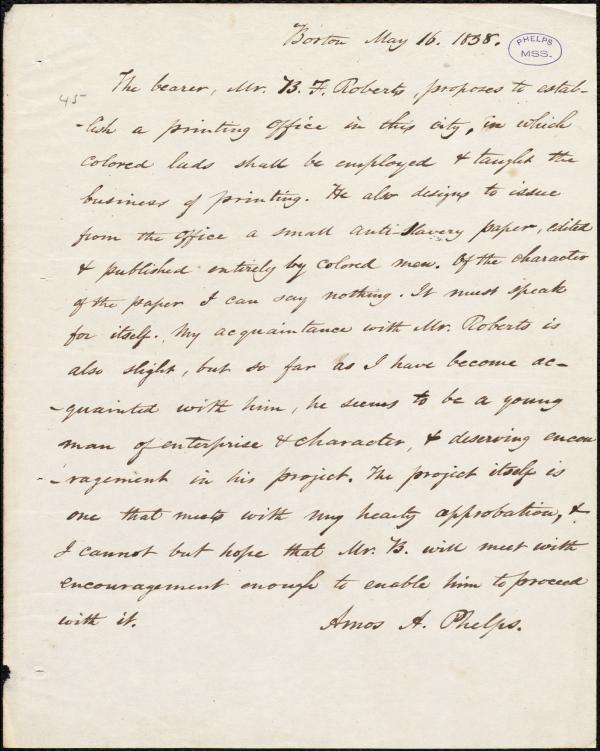 Boston May 16. 1838.
PHELPS
MSS.
45
The bearer, Mr. B. F. Roberts, proposes to estab-
-lish a printing office in this city, in which
colored lads shall be employed & taught the
business of printing. He also designs to issue
from the office a small anti Slavery paper, edited
& published entirely by colored men. Of the character
of the paper I can say nothing. It must speak
for itself. My acquaintance with Mr. Roberts is
also slight, but so far as I have become ac-
-quainted with him, he seems to be a young
man of enterprise & character, & deserving encou
-ragement in his project. The project itself is
one that meets with my hearty approbation, &
I cannot but hope that Mr. B. will meet with
encouragement enough to enable him to proceed
with it.
Amos A. Phelps.